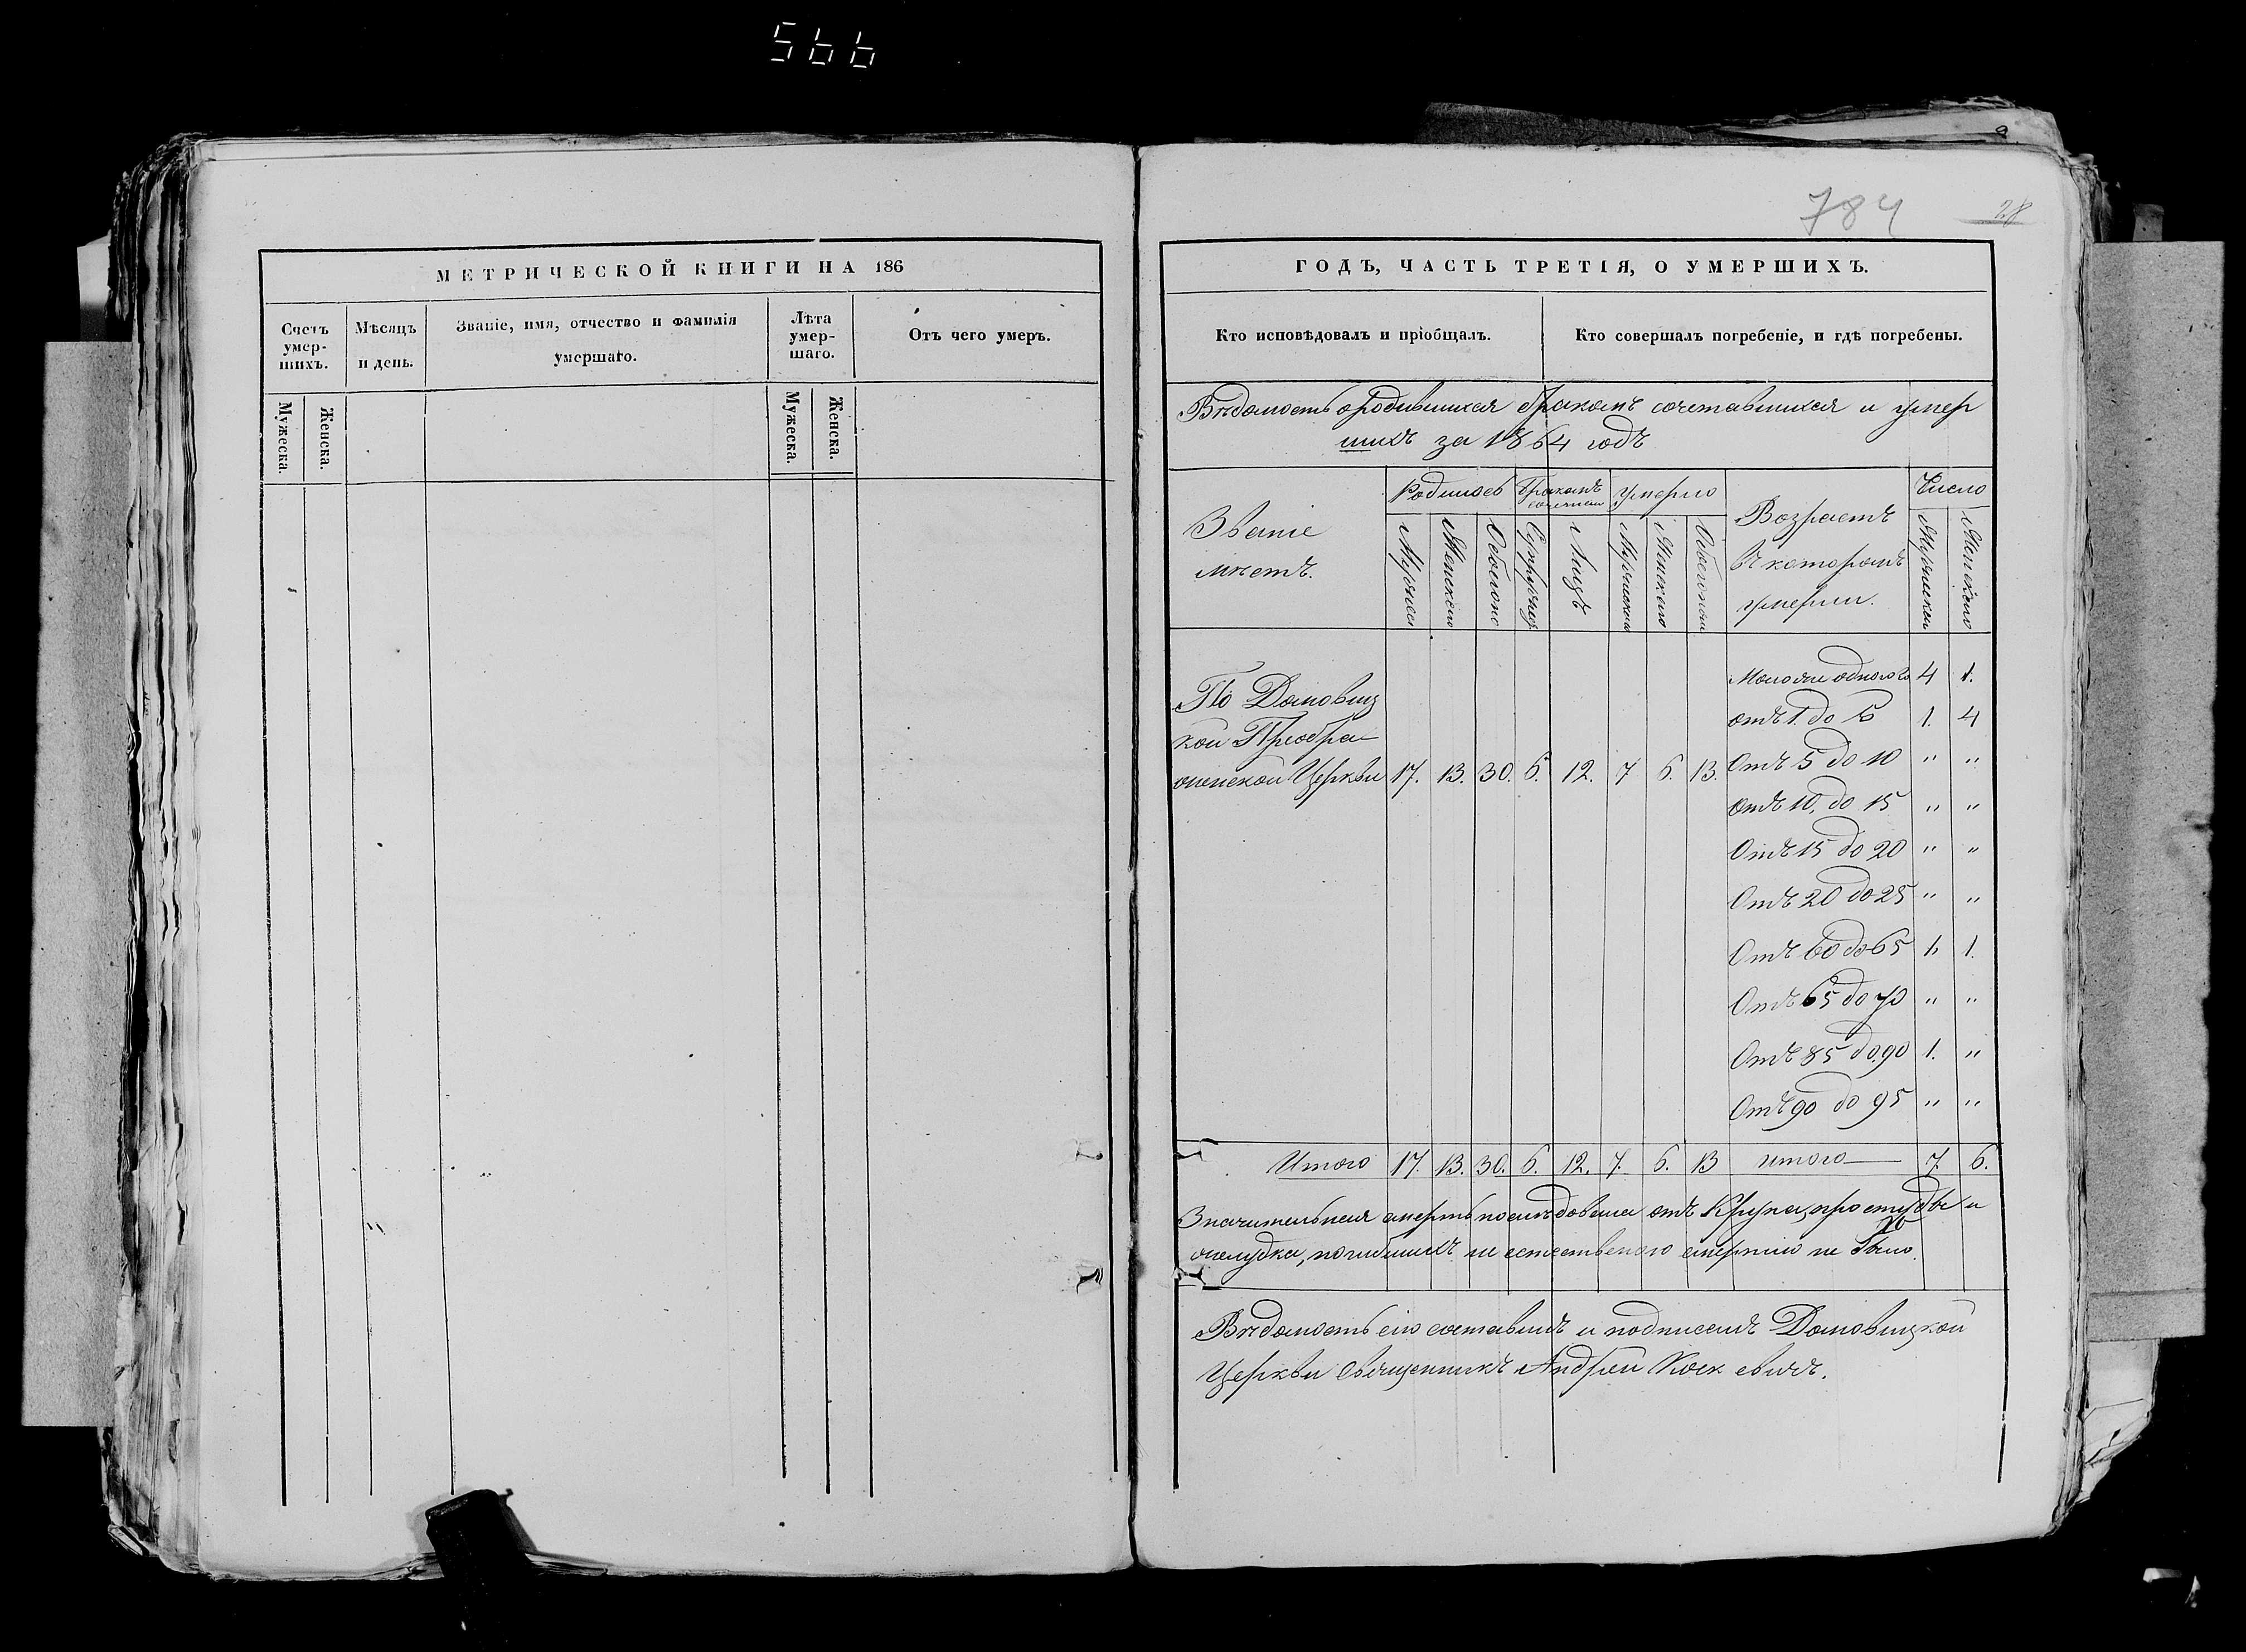 566
784
28
МЕТРИЧЕСКОЙ КНИГИ НА 186
Счетъ умерших. Мѣсяцъ и день. Званіе, имя, отчество и фамилія умершаго. Лѣта умершаго. Отъ чего умеръ.
Мужеска. Женска. Мужеска. Женска.
ГОДЪ, ЧАСТЬ ТРЕТІЯ, О УМЕРШИХЪ.
Кто исповѣдовалъ и пріобщалъ. Кто совершалъ погребеніе, и гдѣ погребены.
Вѣдомость о родившихся бракомъ сочетавшихся и умер
шихъ за 1864 годъ
Званіе мѣстъ. Родилось Бракомъ Умерло Возрастъ въ которомъ умерли. Число
Женскаго Обоего Лицъ Женскаго
По Домовиц
кой Преобра
женской Церкви 17. 13. 30. 6. 12. 7 6. 13.
одного 4 1.
отъ 1. до 5 1. 4
Отъ 5 до 10 " "
отъ 10. до 15 " "
Отъ 15 до 20 " "
Отъ 20 до 25 " "
Отъ 60 до 65 1. 1.
Отъ 65 до 70 " "
Отъ 85 до 90 1. "
Отъ 90 до 95 " "
Итого 17. 13. 30. 6. 12. 7. 6. 13 итого 7. 6.
Значительная смерть последовала отъ Крупа, простуды и
желудка, погибшихъ не естественого смертію не было.
Вѣдомость сію составилъ и подписалъ Домовицкой
Церкви Священникъ Андрей